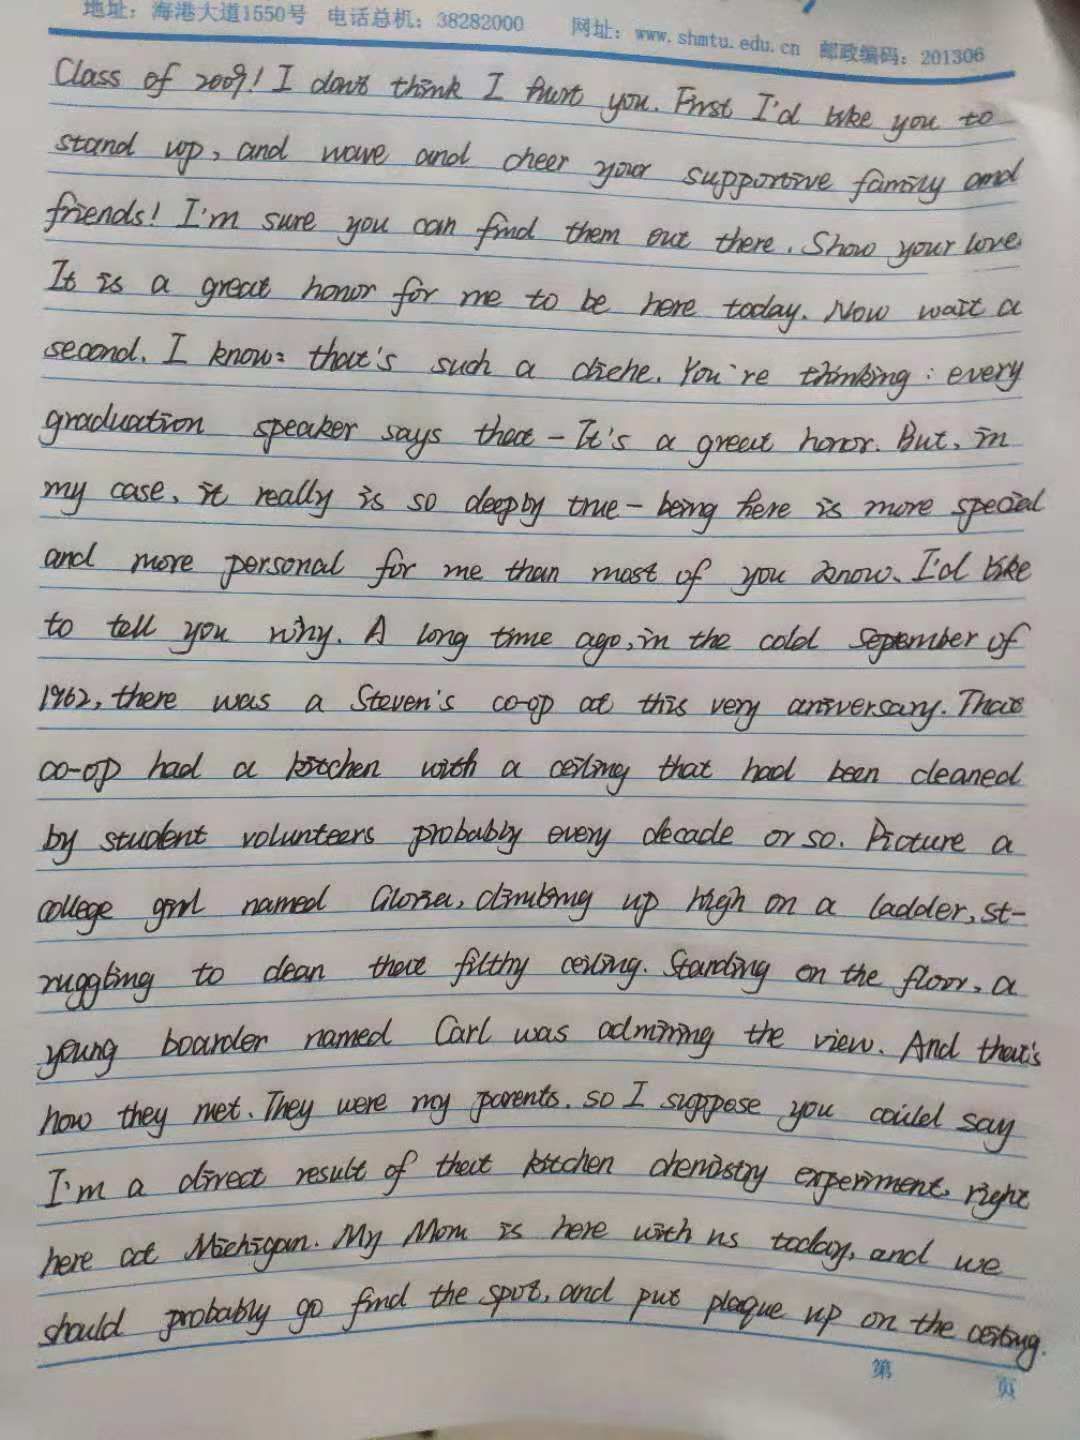 地址：海港大道1550号 电话总机：38282000 网址：www.shmtu.edu.cn 邮政编码：201306
Class of 2009! I don't think I hurt you. First I'd like you to
stand up, and wave and cheer your supportive family and
friends! I'm sure you can find them out there. Show your love.
It is a great honor for me to be here today. Now wait a
second. I know: that's such a cliche. You're thinking: every
graduation speaker says that - It's a great honor. But, in
my case, it really is so deeply true - being here is more special
and more personal for me than most of you know. I'd like
to tell you why. A long time ago, in the cold September of
1962, there was a Steven's co-op at this very aniversary. That
co-op had a kitchen with a ceiling that had been cleaned
by student volunteers probably every decade or so. Picture a
college girl named Gloria, climbing up high on a ladder, st-
ruggling to clean that filthy ceiling. Standing on the floor, a
young boarder named Carl was admiring the view. And that's
how they met. They were my parents. so I suppose you could say
I'm a direct result of that kitchen chemistry experiment, right
here at Michigan. My Mom is here with us today, and we
should probably go find the spot, and put plaque up on the ceiling.
第 页